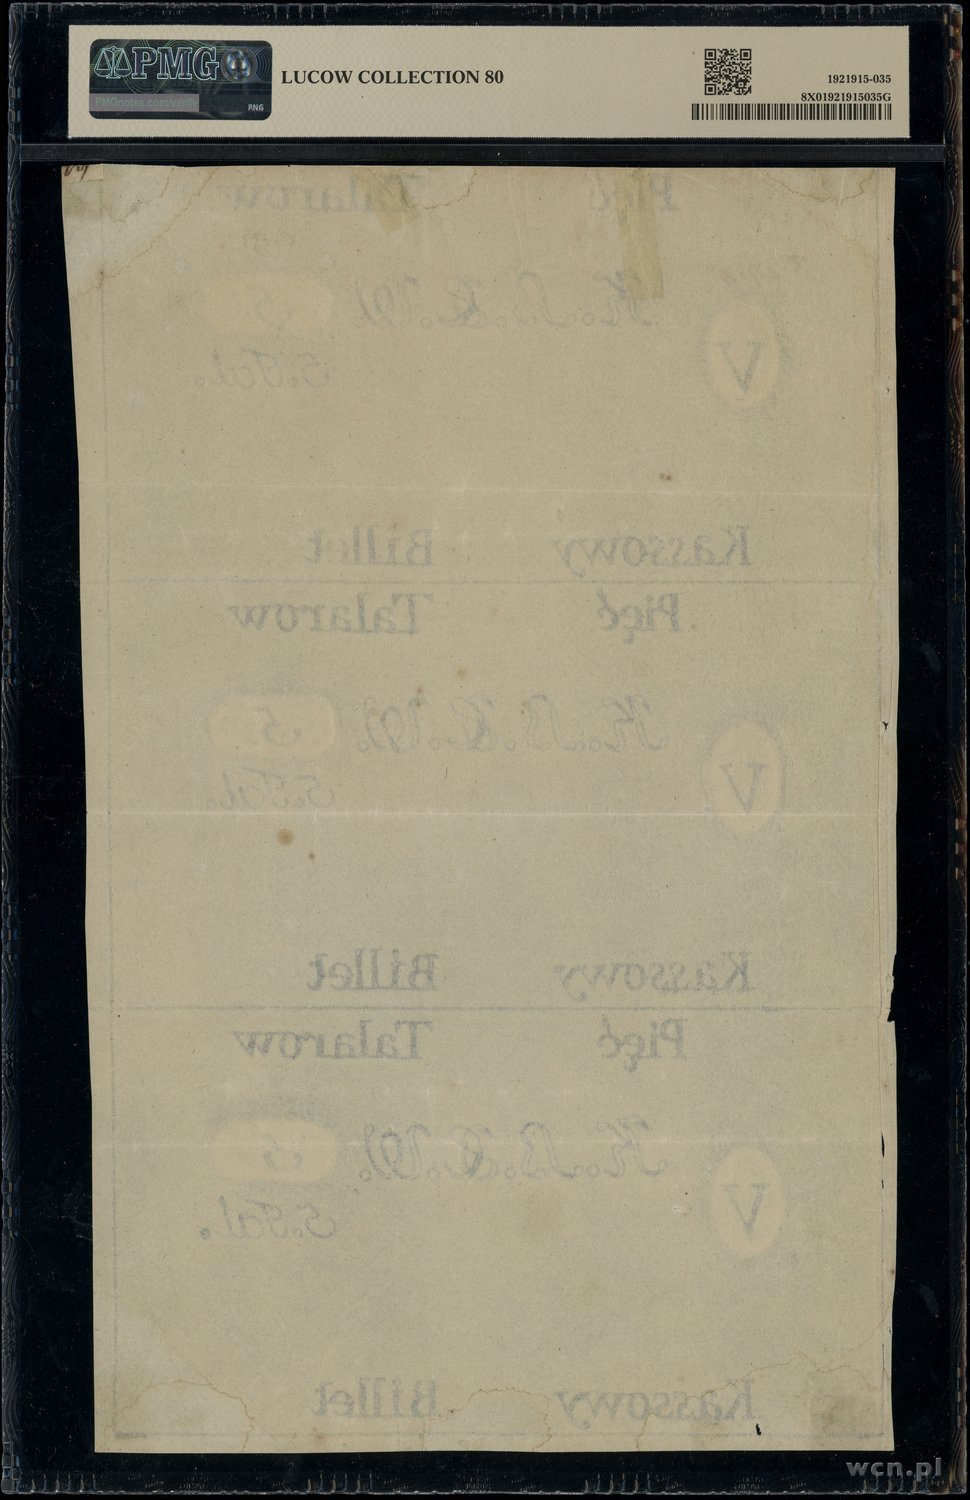 PMG
PMGnotes.com/verify
PNG
LUCOW COLLECTION 80
1921915-035
8X01921915035G
Pięć Talarow
K.B.C.W. 5
V
5.Tal.
Kassowy Billet
Pięć Talarow
K.B.C.W. 5
V
5.Tal.
Kassowy Billet
Pięć Talarow
K.B.C.W. 5
V
5.Tal.
Kassowy Billet
wcn.pl